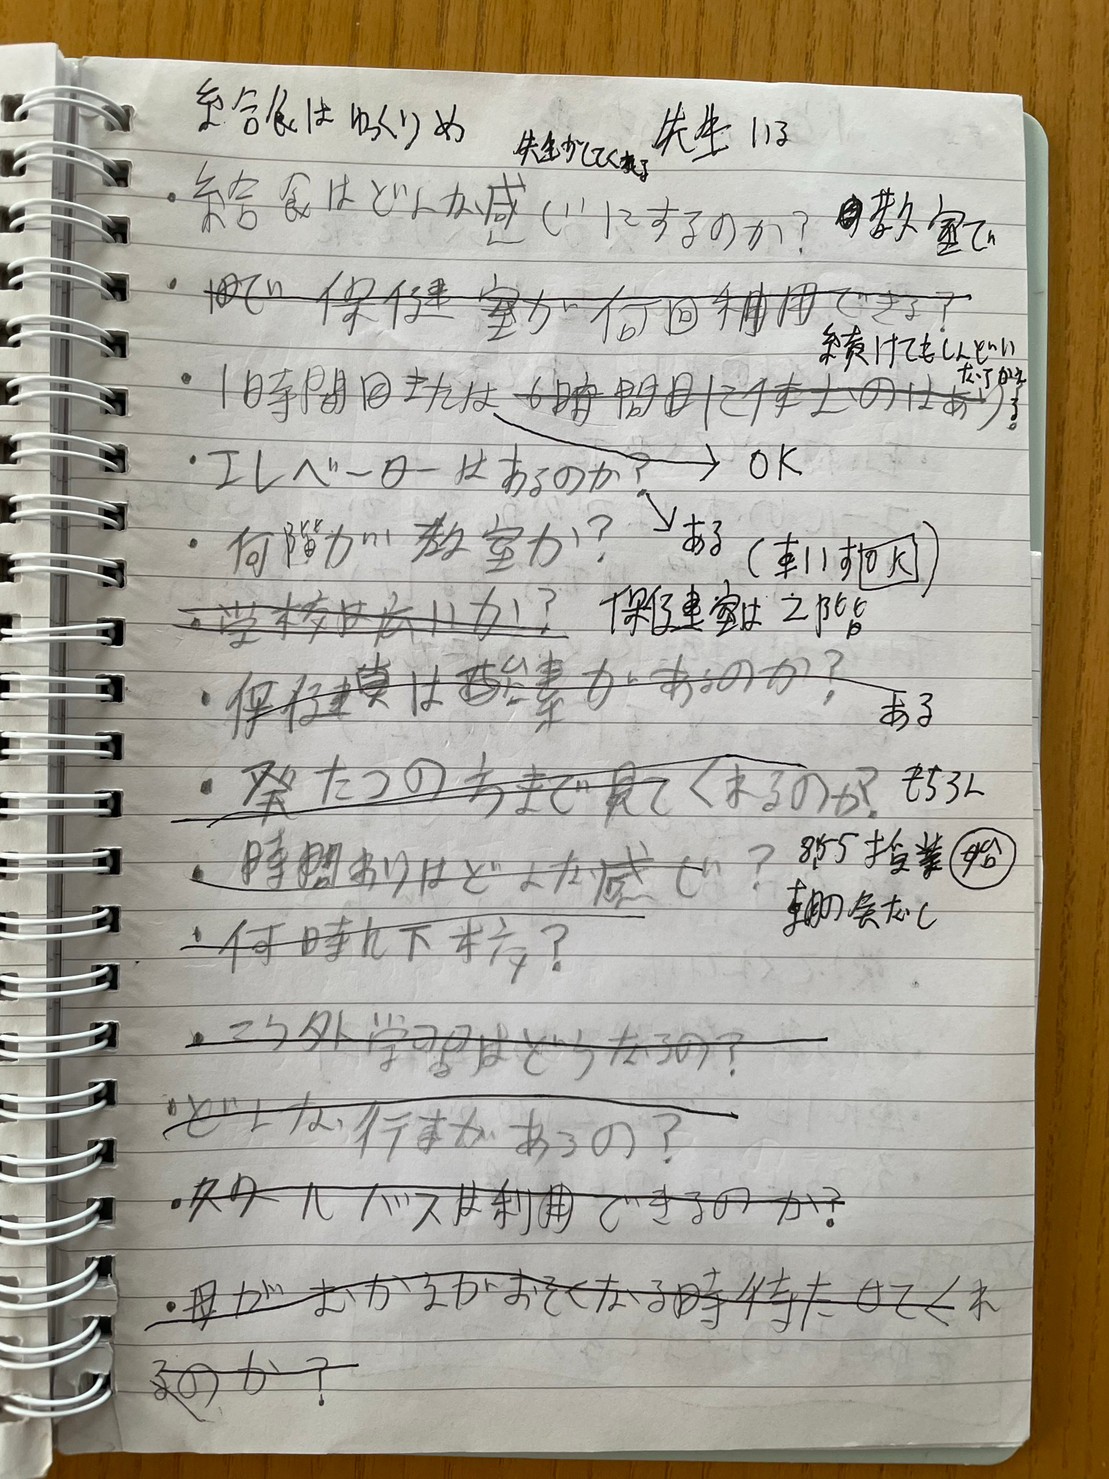 給食はゆっくりめ
先生がしてくれる 先生いる
・給食はどんな感じにするのか? 教室で
・1日で保健室が何回利用できる?
続けてもしんどい
・1時間目または6時間目に休むのはあり?
・エレベーターはあるのか? → OK
・何階が教室か? ある(車いすOK)
・学校は広いか? 保健室は2階
・保健 は酸素があるのか? ある
・発たつの方まで見てくれるのか? もちろん
・時間わりはどんな感じ? 855授業始
朝の会なし
・何時に下校?
・こう外学習はどうなるの?
・どんな行事があるの?
・スクールバスは利用できるのか?
・母がむかえがおそくなる時待たせてくれ
るのか?